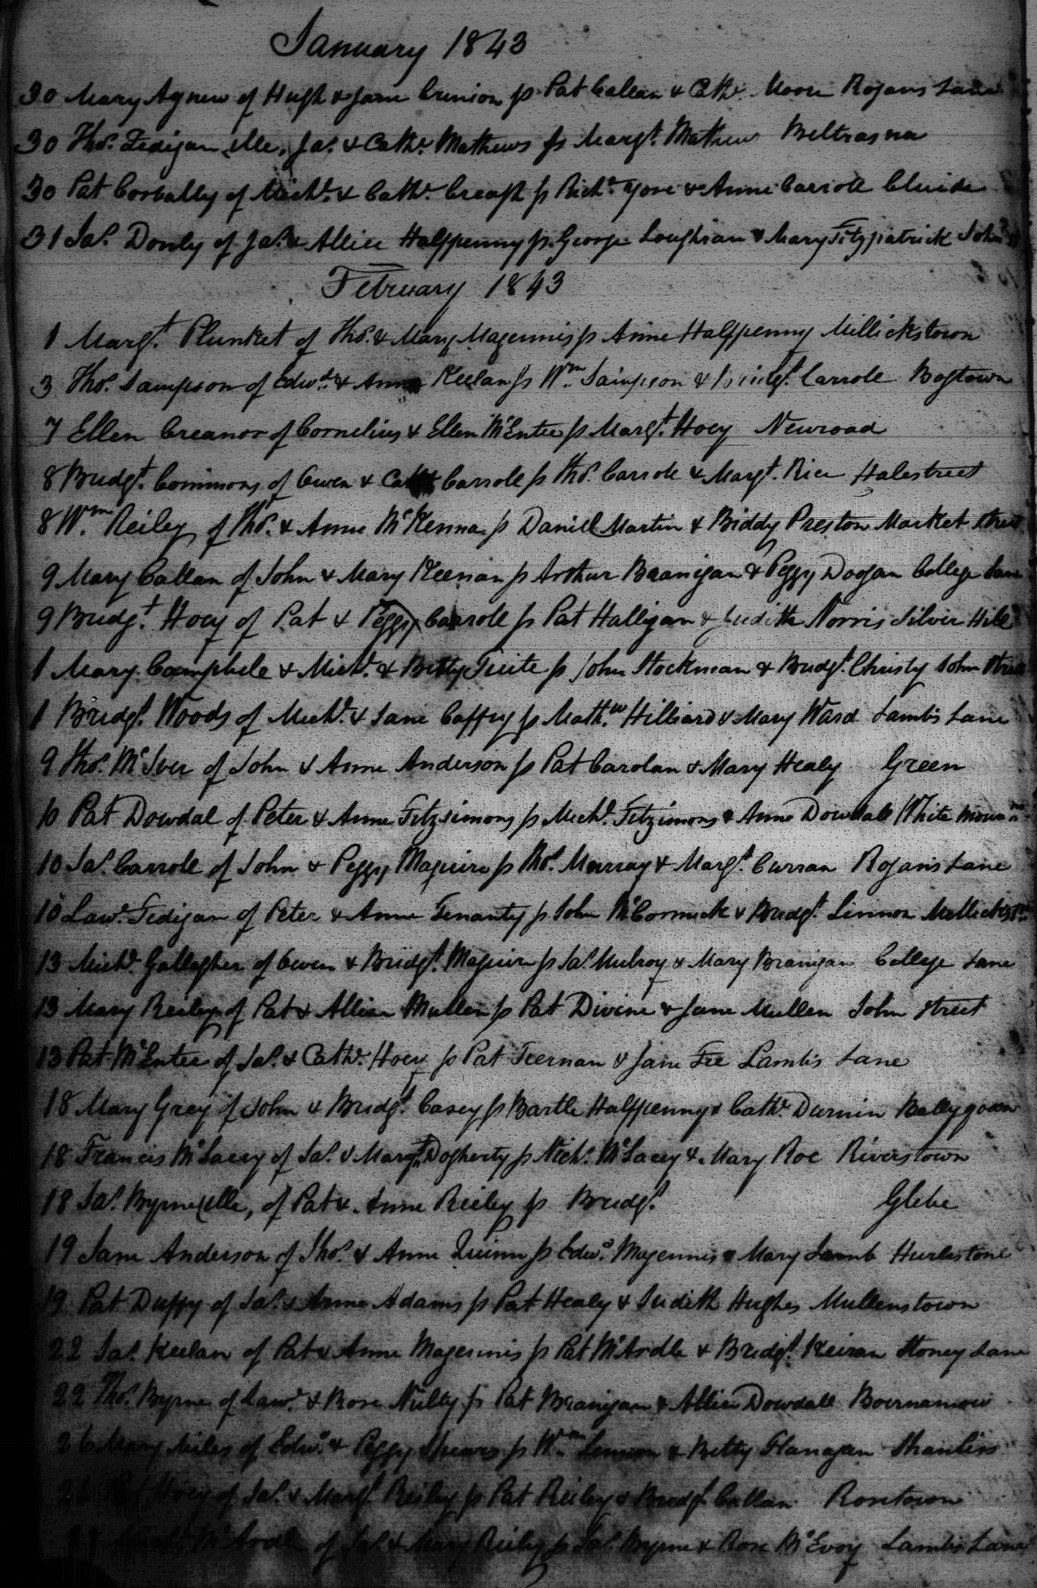 January 1843
30 Mary Agnew of Hugh & Jane Crinion ps Pat Callan & Cath. Moore Rogans Lane
30 Thos. Fedigan, Ille, Jas. & Cathe. Mathews ps Margt. Mathew Beltrasna
30 Pat Corbally of Michl. & Cathe. Creagh ps Richd. Yore & Anne Carroll Cluide
31 Jas. Donly of Jas. & Allice Halfpenny ps. George Loughran & Mary Fitzpatrick John
February 1843
1 Margt. Plunket of Thos. & Mary Magennis ps Anne Halfpenny Millickstown
3 Thos. Sampson of Edwd. & Anne Keelan ps Wm. Sampson & Bridgt. Carrole Bogtown
7 Ellen Creanor of Cornelius & Ellen McEntee ps Margt. Hoey Newroad
8 Bridgt. Commons of Owen & Cath Carrole ps Thos. Carrole & Margt. Rice Halestreet
8 Wm. Reiley of Thos. & Anne McKenna ps Daniel Martin & Biddy Preston Market Street
9 Mary Callan of John & Mary Keenan ps Arthur Branigan & Peggy Dogan College Lane
9 Bridgt. Hoey of Pat & Peggy Carrole ps Pat Halligan & Judith Norris Silver Hill
1 Mary Campbele & Michl. & Betty Tuite ps John Stockman & Bridgt. Christy John Street
1 Bridgt. Woods of Michl. & Jane Caffry ps Mathw. Hilliard & Mary Ward Lambs Lane
9 Thos. McIver of John & Anne Anderson ps Pat Carolan & Mary Healy Green
10 Pat Dowdal of Peter & Anne Fitzsimons ps Michl. Fitzimons & Anne Dowdall White Moun
10 Jas. Carrole of John & Peggy Maguire ps Thos. Murray & Margt. Curran Rogans Lane
10 Lawe. Fedigan of Peter & Anne Finanty ps John McCormick & Bridgt. Linnon Millickst
13 Michl. Gallagher of Owen & Bridgt. Maguire ps Jas. Mulroy & Mary Branigan College Lane
13 Mary Reiley of Pat & Allice Mullen ps Pat Divine & Jane Mullen John Street
13 Pat McEntee of Jas. & Cathe. Hoey ps Pat Teernan & Jane Fee Lambs Lane
18 Mary Grey of John & Bridgt. Casey ps Bartle Halfpenny & Cathe. Durnin Ballygowan
18 Francis McLacey of Jas. & Margt. Dogherty ps Nichs. McLacey & Mary Roe Riverstown
18 Jas. Byrne, Ille, of Pat & Anne Reiley ps Bridgt. Glebe
19 Jane Anderson of Thos. & Anne Quinn ps Edwd. Magennis & Mary Lamb Hurlestone
19 Pat Duffy of Jas. & Anne Adams ps Pat Healy & Judith Hughes Mullenstown
22 Jas. Keelan of Pat & Anne Magennis ps Pat McArdle & Bridgt. Keiran Stoney Lane
22 Thos. Byrne of Lawe. & Rose Nulty ps Pat Branigan & Allice Dowdall
26 Mary Miles of Edwd. & Peggy Shears ps Wm. Lennon & Betty Flanagan Shanliss
26 Hoey of Jas. & Margt. Reiley ps Pat Reiley & Bridgt. Callan Rosetown
McArdle of Jas. & Mary Reiley ps Jas. Byrne & Rose McEvoy Lambs Lane